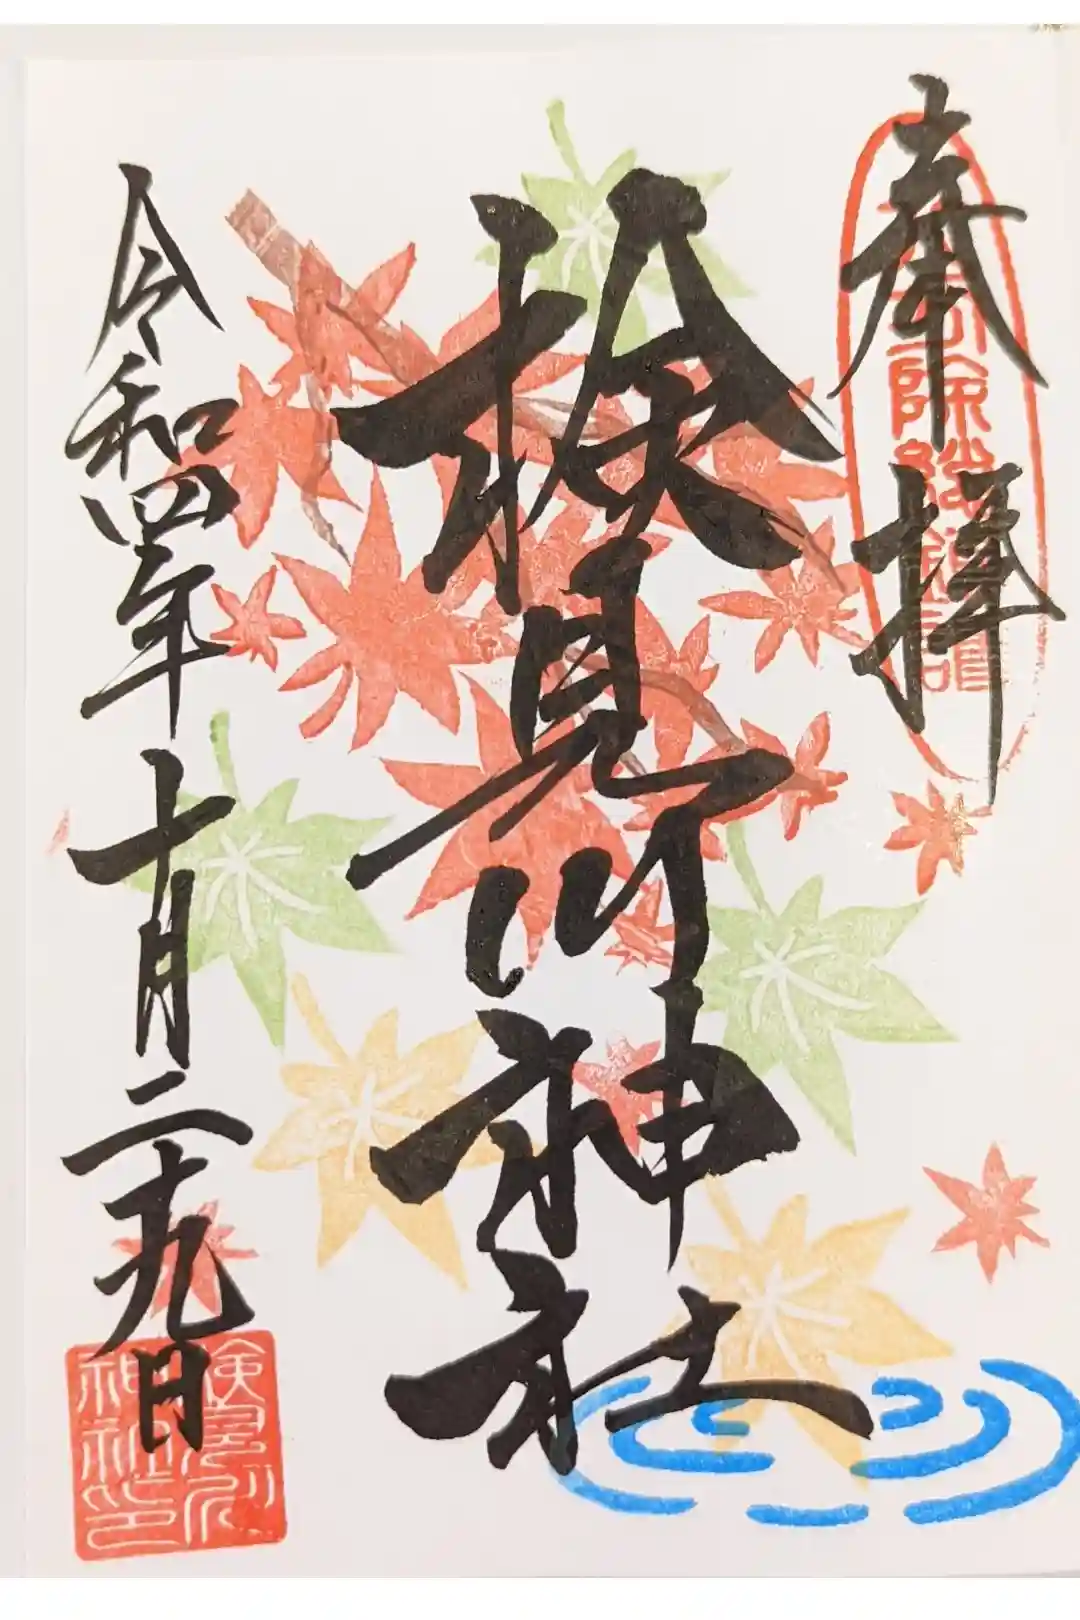 奉拝
検見川神社
令和四年十月二十九日
検見川
神社之印